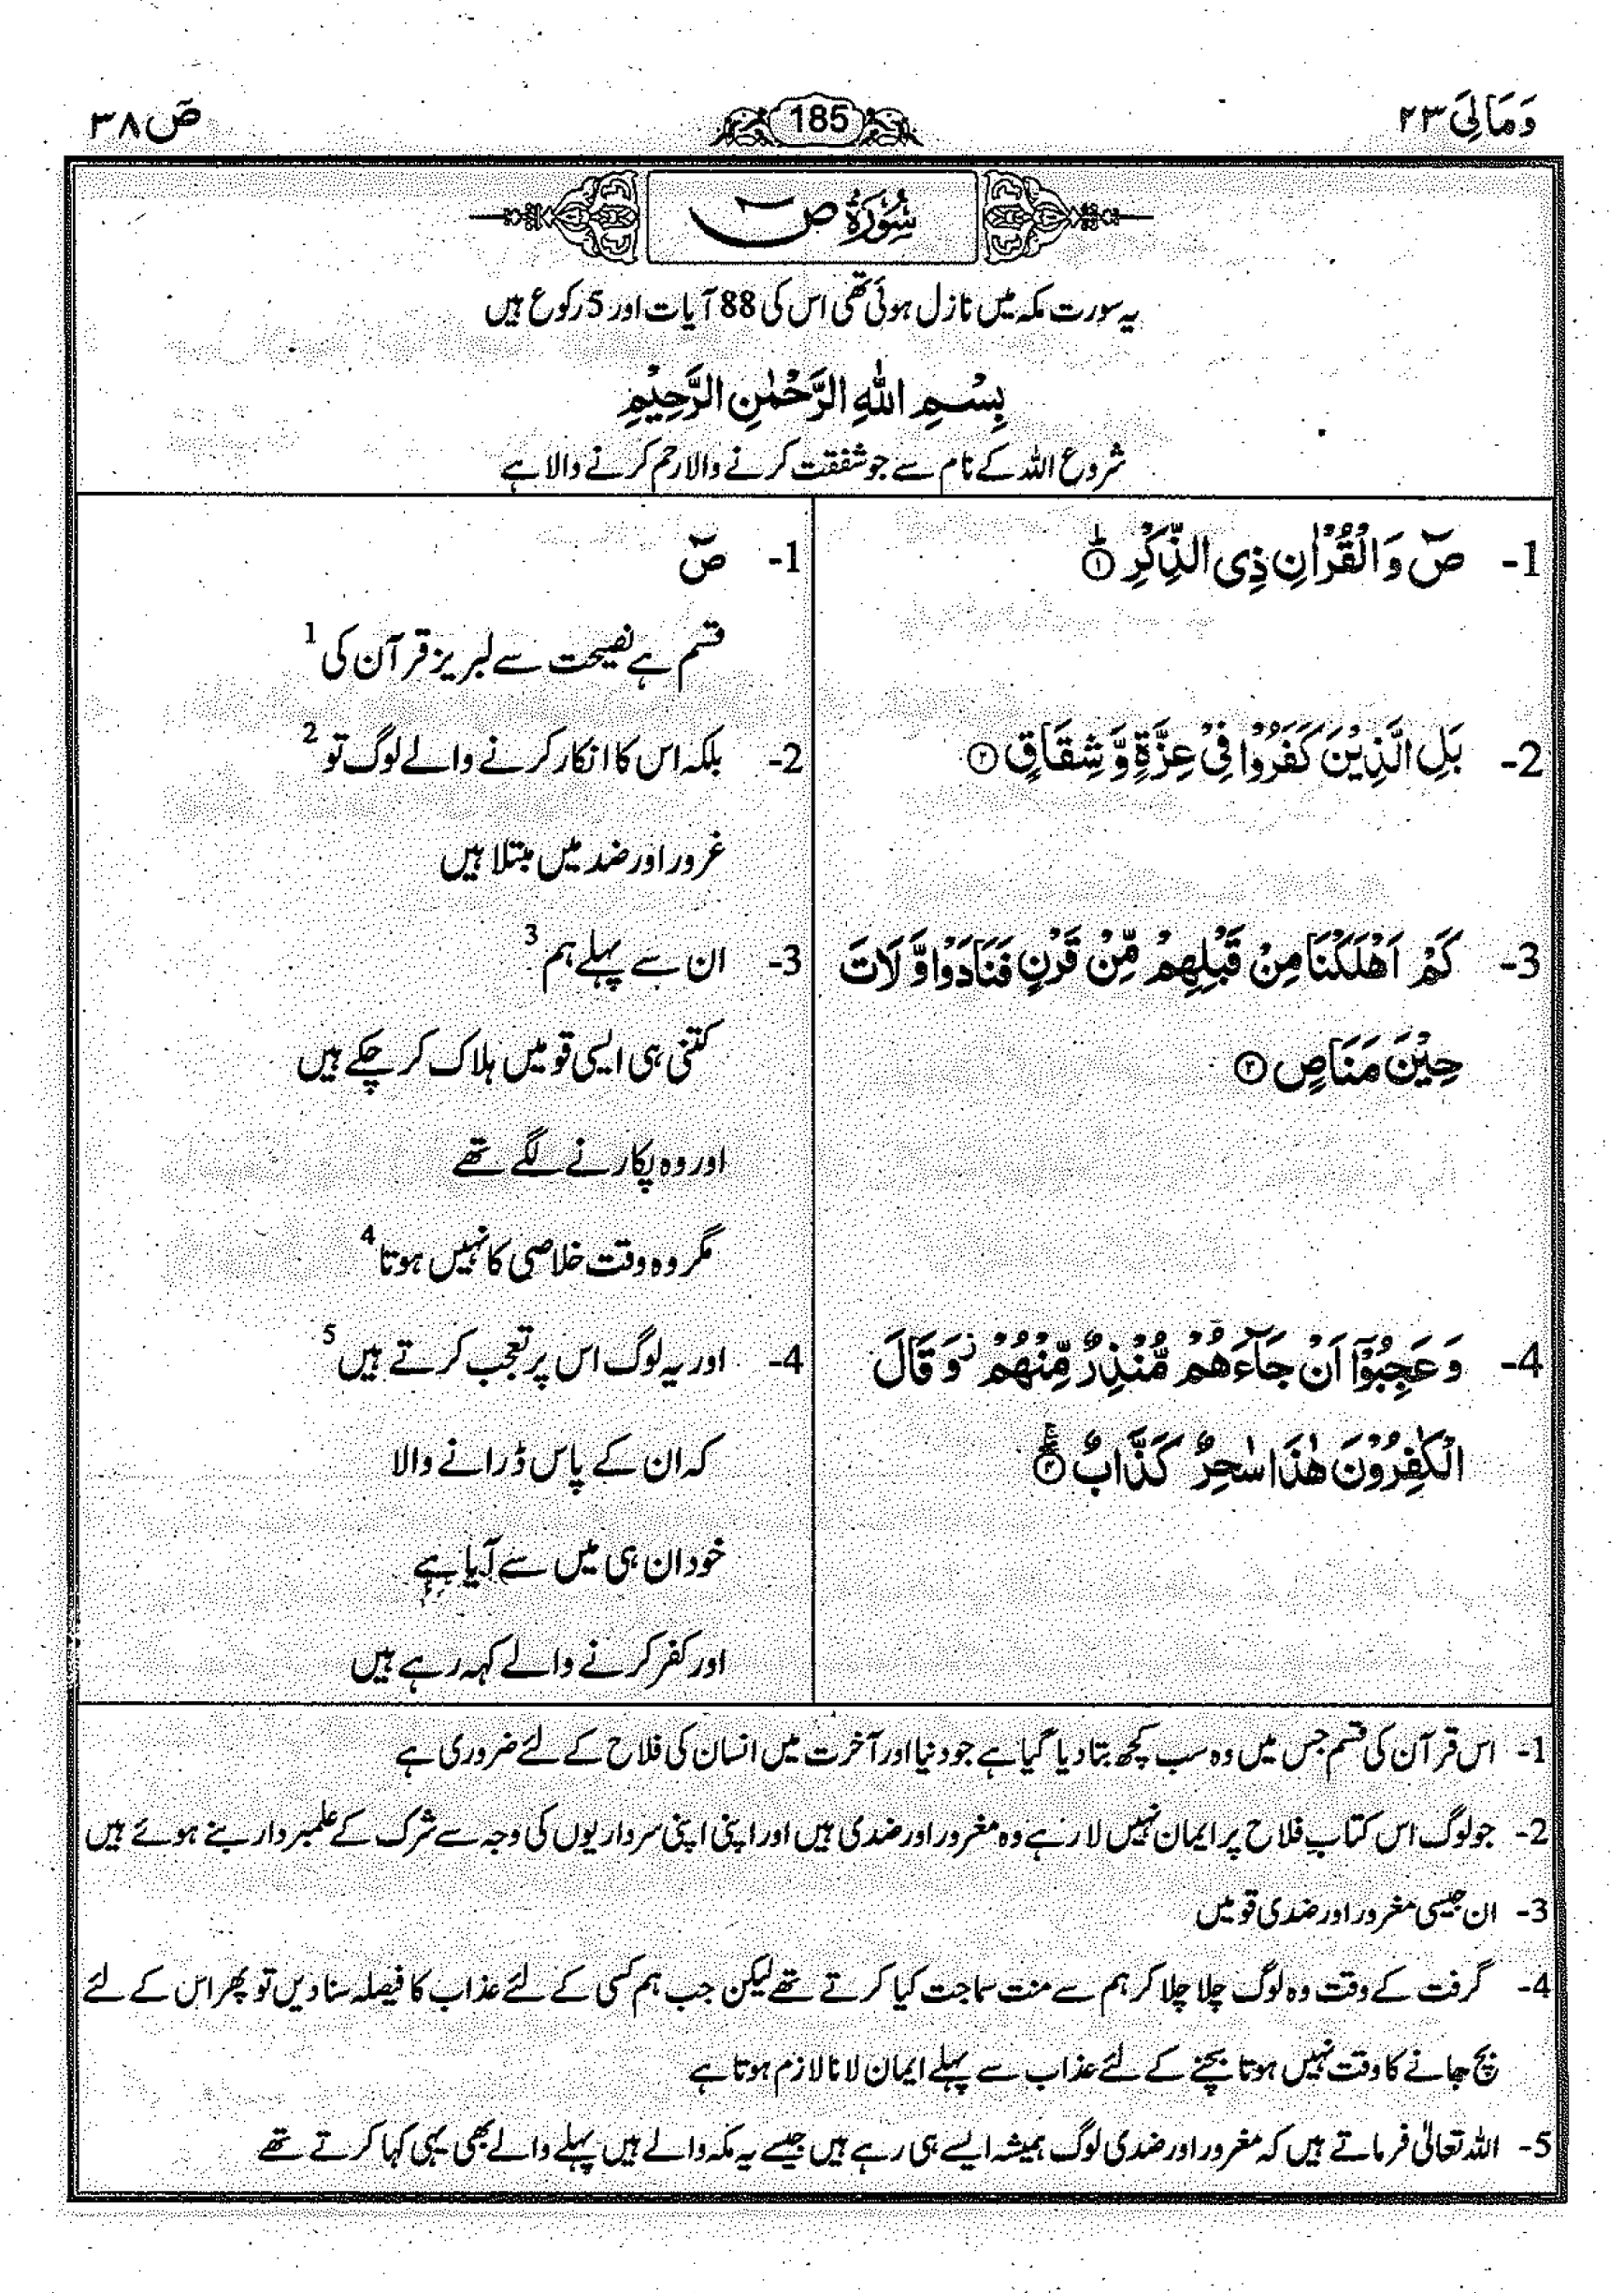 وَمَالِیَ ۲۳
185
صٓ ۳۸
سُوْرَةُ صٓ
یہ سورت مکہ میں نازل ہوئی تھی اس کی 88 آیات اور 5 رکوع ہیں
بِسْمِ اللّٰهِ الرَّحْمٰنِ الرَّحِیْمِ
شروع اللہ کے نام سے جو شفقت کرنے والا رحم کرنے والا ہے
1- صٓ وَالْقُرْاٰنِ ذِی الذِّکْرِ ؕ ۱
2- بَلِ الَّذِیْنَ کَفَرُوْا فِیْ عِزَّةٍ وَّ شِقَاقٍ ۲
3- کَمْ اَهْلَکْنَا مِنْ قَبْلِهِمْ مِّنْ قَرْنٍ فَنَادَوْا وَّ لَاتَ
حِیْنَ مَنَاصٍ ۳
4- وَ عَجِبُوْۤا اَنْ جَآءَهُمْ مُّنْذِرٌ مِّنْهُمْ ۫ وَ قَالَ
الْکٰفِرُوْنَ هٰذَا سٰحِرٌ کَذَّابٌ ۴
1- صٓ
قسم ہے نصیحت سے لبریز قرآن کی 1
2- بلکہ اس کا انکار کرنے والے لوگ تو 2
غرور اور ضد میں مبتلا ہیں
3- ان سے پہلے ہم 3
کتنی ہی ایسی قومیں ہلاک کر چکے ہیں
اور وہ پکارنے لگے تھے
مگر وہ وقت خلاصی کا نہیں ہوتا 4
4- اور یہ لوگ اس پر تعجب کرتے ہیں 5
کہ ان کے پاس ڈرانے والا
خود ان ہی میں سے آیا ہے
اور کفر کرنے والے کہہ رہے ہیں
1- اس قرآن کی قسم جس میں وہ سب کچھ بتا دیا گیا ہے جو دنیا اور آخرت میں انسان کی فلاح کے لئے ضروری ہے
2- جو لوگ اس کتابِ فلاح پر ایمان نہیں لا رہے وہ مغرور اور ضدی ہیں اور اپنی اپنی سرداریوں کی وجہ سے شرک کے علمبردار بنے ہوئے ہیں
3- ان جیسی مغرور اور ضدی قومیں
4- گرفت کے وقت وہ لوگ چلا چلا کر ہم سے منت سماجت کیا کرتے تھے لیکن جب ہم کسی کے لئے عذاب کا فیصلہ سنا دیں تو پھر اس کے لئے
بچ جانے کا وقت نہیں ہوتا بچنے کے لئے عذاب سے پہلے ایمان لانا لازم ہوتا ہے
5- اللہ تعالیٰ فرماتے ہیں کہ مغرور اور ضدی لوگ ہمیشہ ایسے ہی رہے ہیں جیسے یہ مکہ والے ہیں پہلے والے بھی یہی کہا کرتے تھے